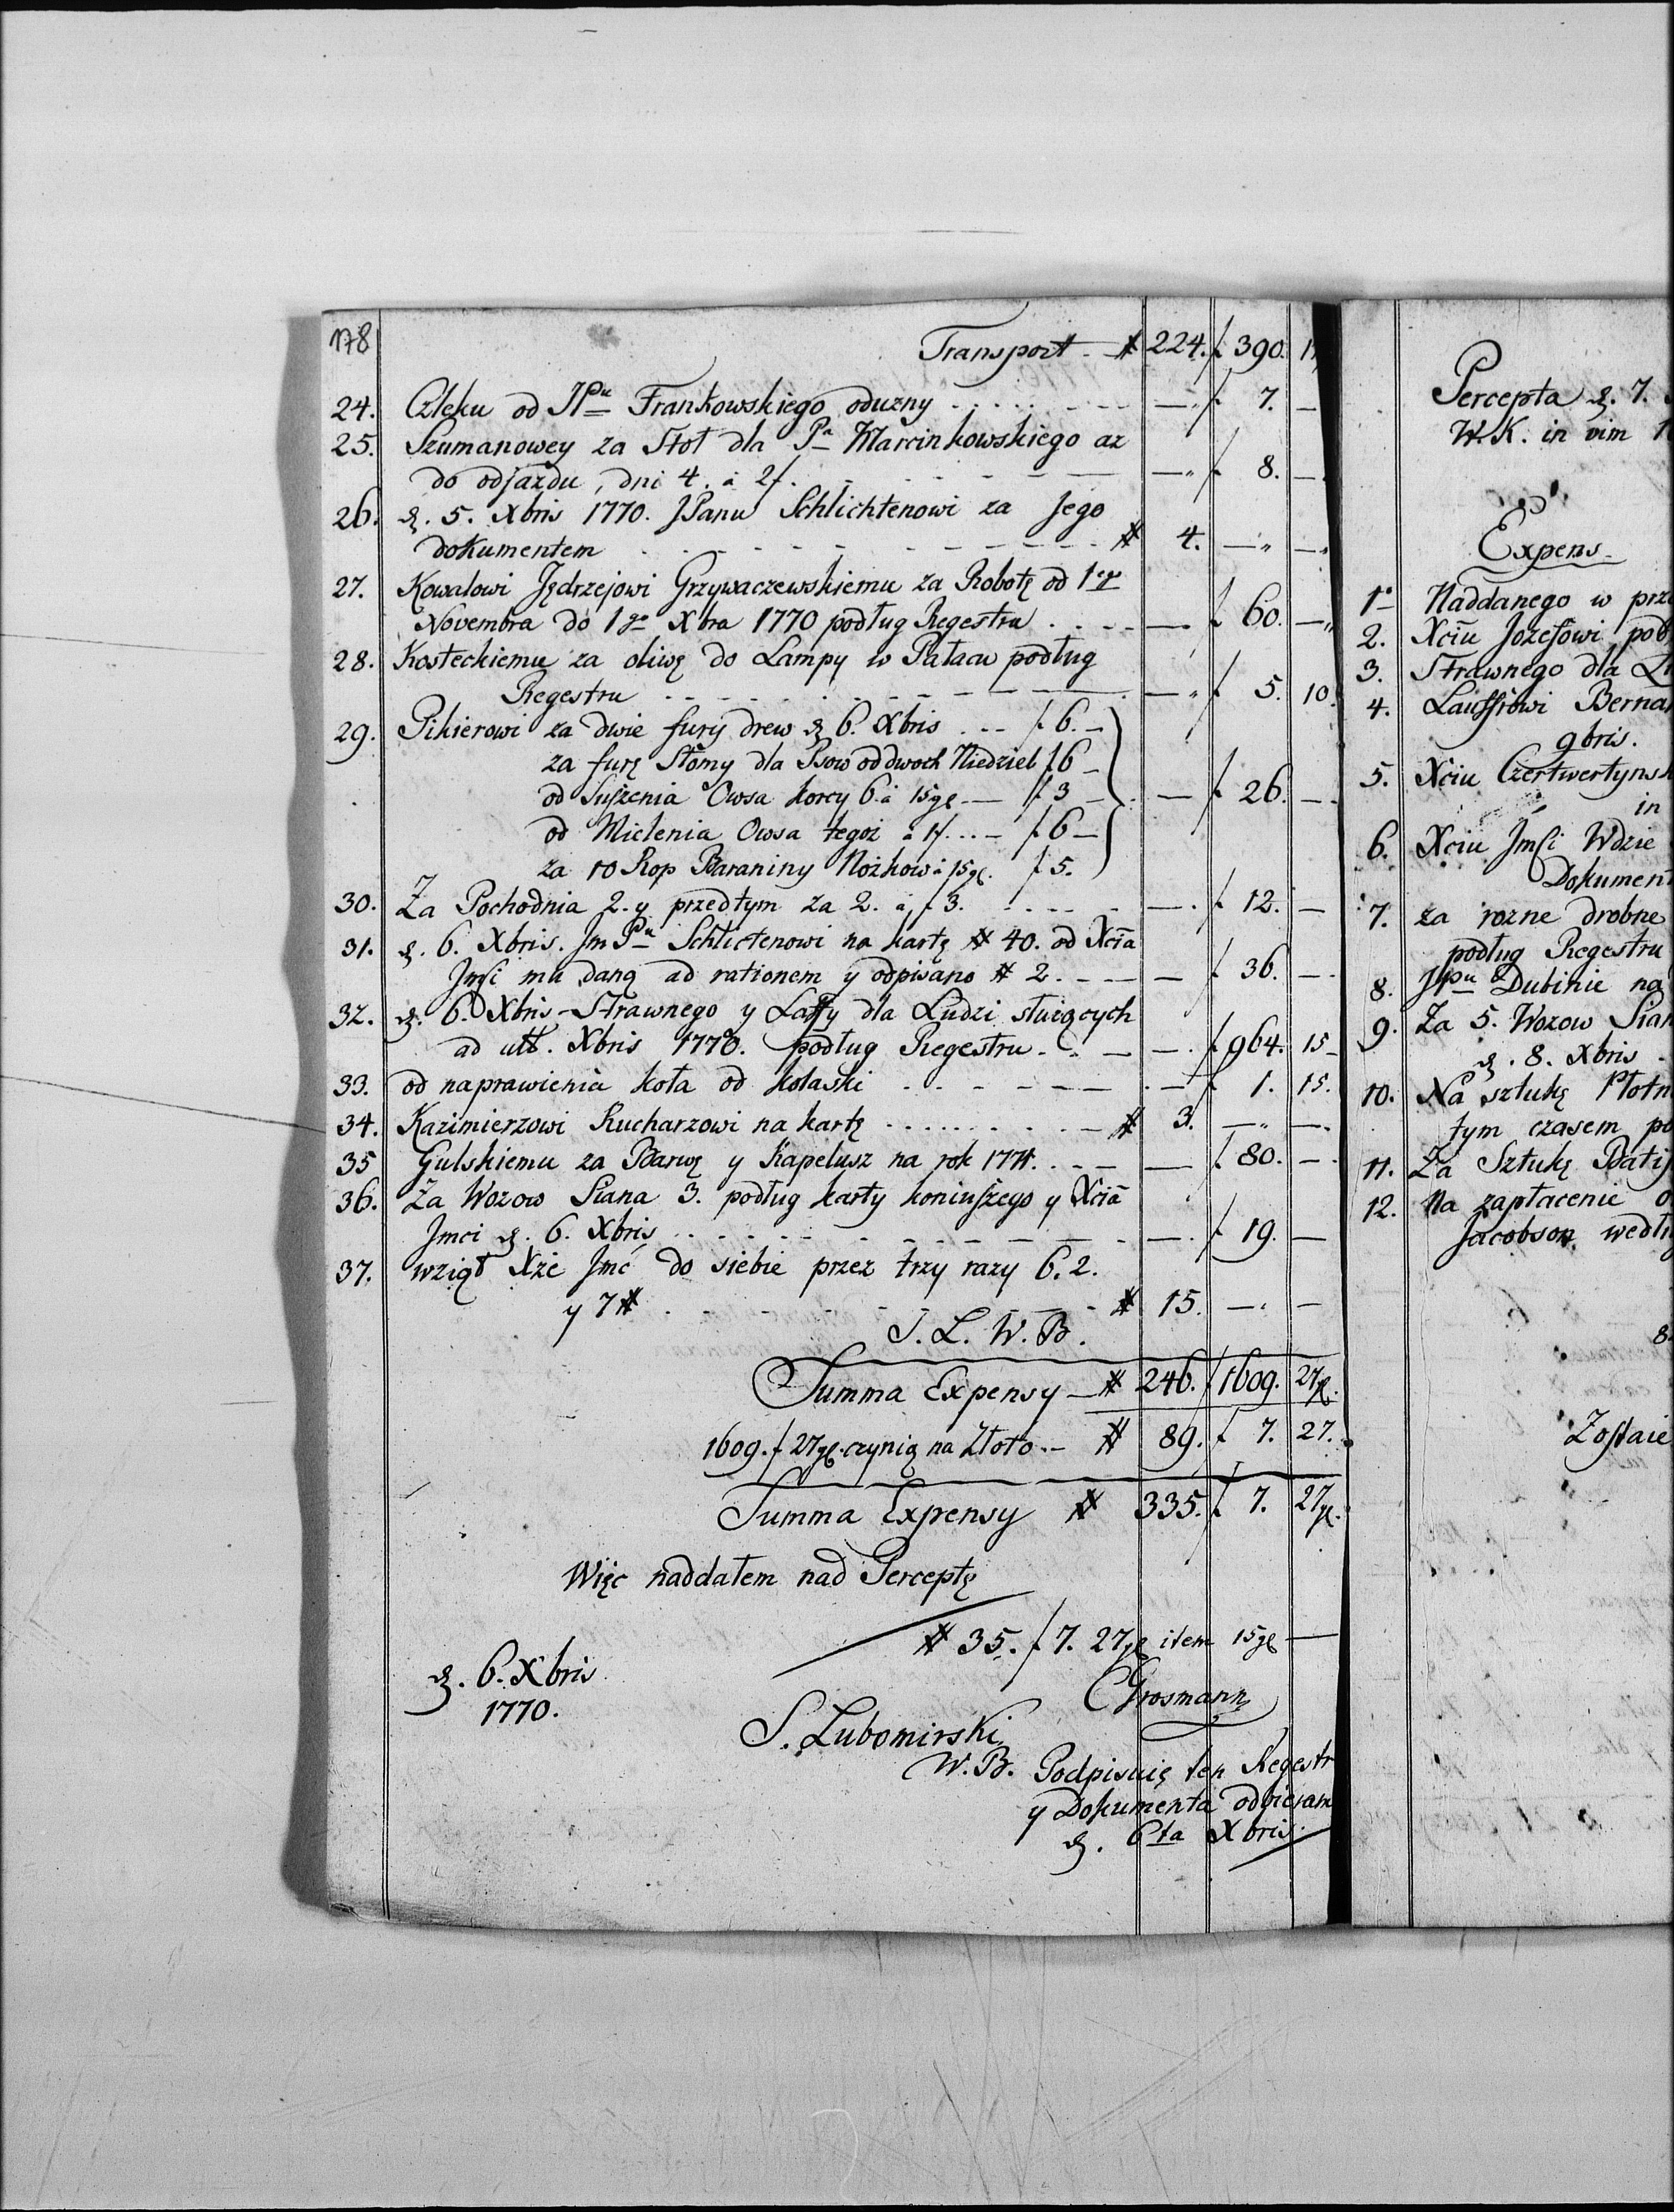 178
Transport - # 224. f 390. 17
24. Czleku od JPu Frankowskiego oduzny . . . . . . — . f 7. —
25. Szumanowey za Stoł dla Pa Marcinkowskiego az
do odjazdu, dni 4. à 2f. - - - - - — . f 8. —
26. d. 5. Xbris 1770. JPanu Schlichtenowi za Jego
dokumentem - - - - - - - - # 4. — . —
27. Kowalowi Jędrzejowi Grzywaczewskiemu za Robotę od 1go
Novembra do 1go Xbra 1770 podług Regestru . . . . — f 60. —
28. Kosteckiemu za oliwę do Lampy w Pałacu podług
Regestru - - - - - - - — . f 5. 10.
29. Pikierowi za dwie fury drew d. 6. Xbris . . . f 6. —
za furę Słomy dla Psow od dwoch Niedziel f 6 —
od Suszenia Owsa korcy 6. à 15 gl. — f 3 — — f 26. —
od Mielenia Owsa tegoż à 1f. . . — f 6 —
za 10 Kop Baraniny Nożkow à 15 gl. f 5.
30. Za Pochodnia 2. y przedtym za 2. à f 3. . . . . — . f 12. —
31. d. 6. Xbris. Jm Pu Schlictenowi na kartę # 40. od Xcia
Jmści mu daną ad rationem y odpisano # 2. - - — — f 36. —
32. d. 6. Xbris - Strawnego y Laffy dla Ludzi służących
ad ult. Xbris 1770. podług Regestru - . — — . f 964. 15 —
33. od naprawienia koła od kolaski . . . . . — — . — f 1. 15.
34. Kazimierzowi Kucharzowi na kartę . . . . . . . — # 3. — . —
35 Gulskiemu za Barwę y Kapelusz na rok 1771. . . — — f 80. —
36. Za Wozow Siana 3. podług karty koniuszego y Xcia
Jmci d. 6. Xbris . . . . . . . . — . f 19. —
37. wziął Xże Jmć do siebie przez trzy razy 6. 2.
y 7 # . . . . . . . . # 15. — . —
S. L. W. B.
Summa Expensy — # 246. f 1609. 27 gl.
1609. f 27 gl. czynią na Złoto. — # 89. f 7. 27.
Summa Expensy # 335. f 7. 27 gl.
Więc naddałem nad Perceptę
# 35. f 7. 27 gl item 15 gl —
d. 6. Xbris
1770.
CGrosmann
S. Lubomirski
W. B. Podpisuię ten Regestr
y Dokumenta odbieram
d. 6ta Xbris.
Percepta d. 7.
W. K. in vim
Expens
1o Naddanego w prze
2. Xciu Jozefowi pod
3. Strawnego dla
4. Lauffrowi Bernar
9bris.
5. Xciu Czertwertynsk
in
6. Xciu Jmści Wdzie
Dokument
7. za rozne drobne
podług Regestru
8. JPu Dubinie na
9. Za 5. Wozow Sian
d. 8. Xbris
10. Na sztukę Płotn
tym czasem po
11. Za Sztukę Batys
12. Na zapłacenie o
Jacobson. wedłu
8.
Zostaie